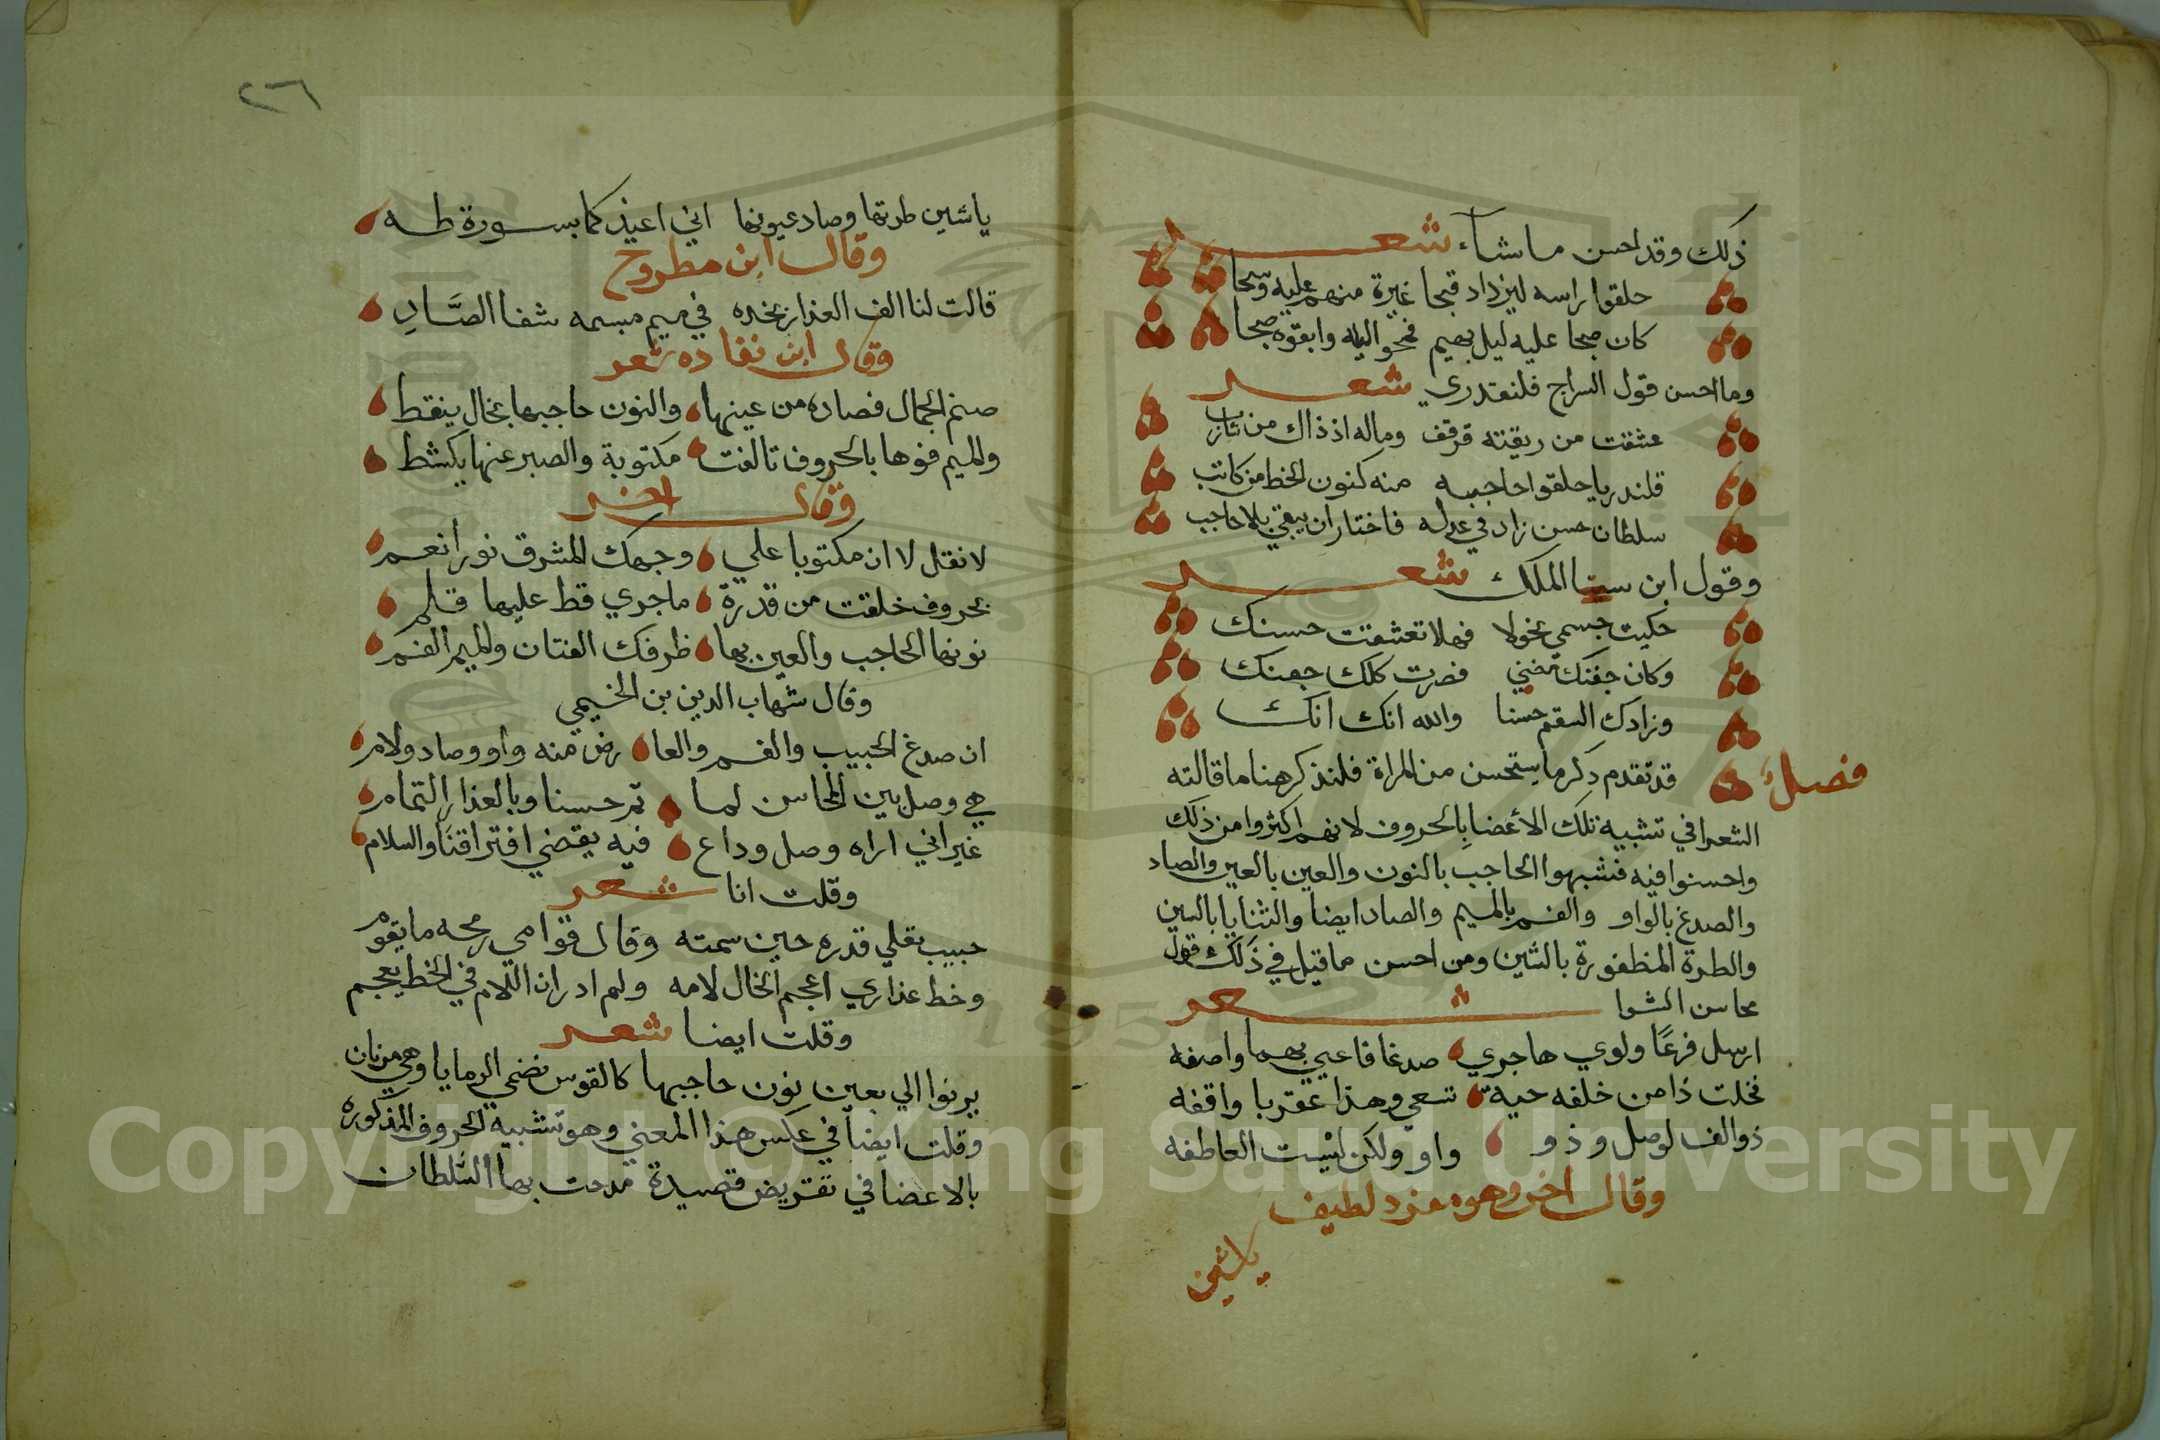 ذلك وقد احسن ما شاء شعر
حلقوا راسه ليزداد قبحا غيرة منهم عليه وشحا
كان صبحا عليه ليل بهيم فمحوا ليله وابقوه صبحا
وما احسن قول السراج في قلندري شعر
عشقت من ريقته قرقف وماله اذ ذاك من شارب
قلندريا حلقوا حاجبيه منه كنون الخط من كاتب
سلطان حسن زاد في عدله فاختار ان يبقي بلا حاجب
وقول ابن سنا الملك شعر
حكيت جسمي نحولا فهلا تعشقت حسنك
وكان جفنك مضني فصرت كلك جفنك
وزادك السقم حسنا والله انك انك
فصل قد تقدم ذكر ما يستحسن من المراة فلنذكر هنا ما قالته
الشعرا في تشبيه تلك الأعضا بالحروف لانهم اكثروا من ذلك
واحسنوا فيه فشبهوا الحاجب بالنون والعين بالعين والصاد
والصدغ بالواو والفم بالميم والصاد ايضا والثنايا بالسين
والطرة المظفورة بالشين ومن احسن ما قيل في ذلك قول
محاسن الشوا شعر
ارسل فرعًا ولوي هاجري صدغا فاعيي بهما واصفه
فخلت ذا من خلفه حية تسعي وهذا عقربا واقفه
ذو الف لوصل وذو واو ولكن ليست العاطفه
وقال اخر وهو مفرد لطيف
ياشين
٢٦
ياشين طرتها وصاد عيونها اني اعيذكما بسورة طه
وقال ابن مطروح
قالت لنا الف العذار بخده في ميم مبسمه شفا الصَّادِ
وقال ابن نفاده شعر
صنم الجمال فصاده من عينها والنون حاجبها بخال ينقط
والميم فوها بالحروف تالفت مكتوبة والصبر عنها يكشط
وقال اخر
لا نقل لا ان مكتوبا علي وجهك المشرق نورا نعم
بحروف خلقت من قدرة ما جري قط عليها قلم
نونها الحاجب والعين بها طرفك الفتان والميم الفم
وقال شهاب الدين بن الخيمي
ان صدغ الحبيب والفم والعا رض منه واو وصاد ولام
هي وصل بين المحاسن لما تم حسنا وبالعذار التمام
غير اني اراه وصل وداع فيه يقضي افتراقنا والسلام
وقلت انا شعر
حبيب بقلي قدره حين سمته وقال قوامي رمحه ما يقوم
وخط عذاري اعجم الخال لامه ولم ادر ان اللام في الخط يعجم
وقلت ايضا شعر
يرنوا الي بعين نون حاجبها كالقوس تضمي الرمايا وهي مرنان
وقلت ايضاً في عكس هذا المعني وهو تشبيه الحروف المذكوره
بالاعضا في تقريض قصيدة مدحت بها السلطان
Copyright © King Saud University
1957